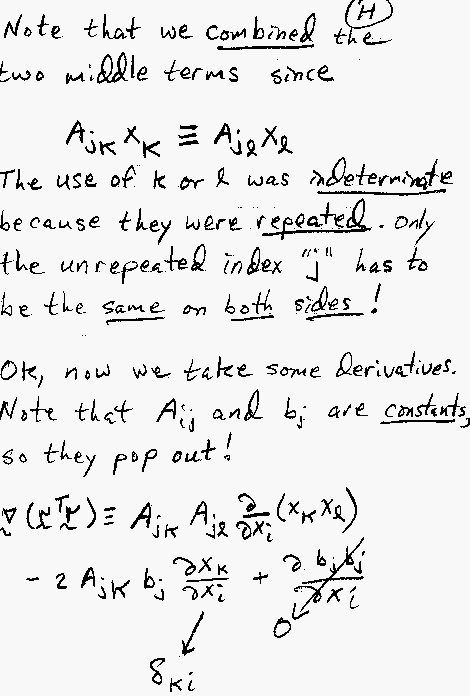 H
Note that we combined the
two middle terms since
A_jk x_k ≡ A_jl x_l
The use of k or l was indeterminate
because they were repeated. Only
the unrepeated index "j" has to
be the same on both sides!
OK, now we take some derivatives.
Note that A_ij and b_j are constants,
so they pop out!
∇(r^T r) ≡ A_jk A_jl ∂/∂x_i (x_k x_l)
- 2 A_jk b_j ∂x_k/∂x_i + ∂ b_j b_j/∂x_i
0
δ_ki